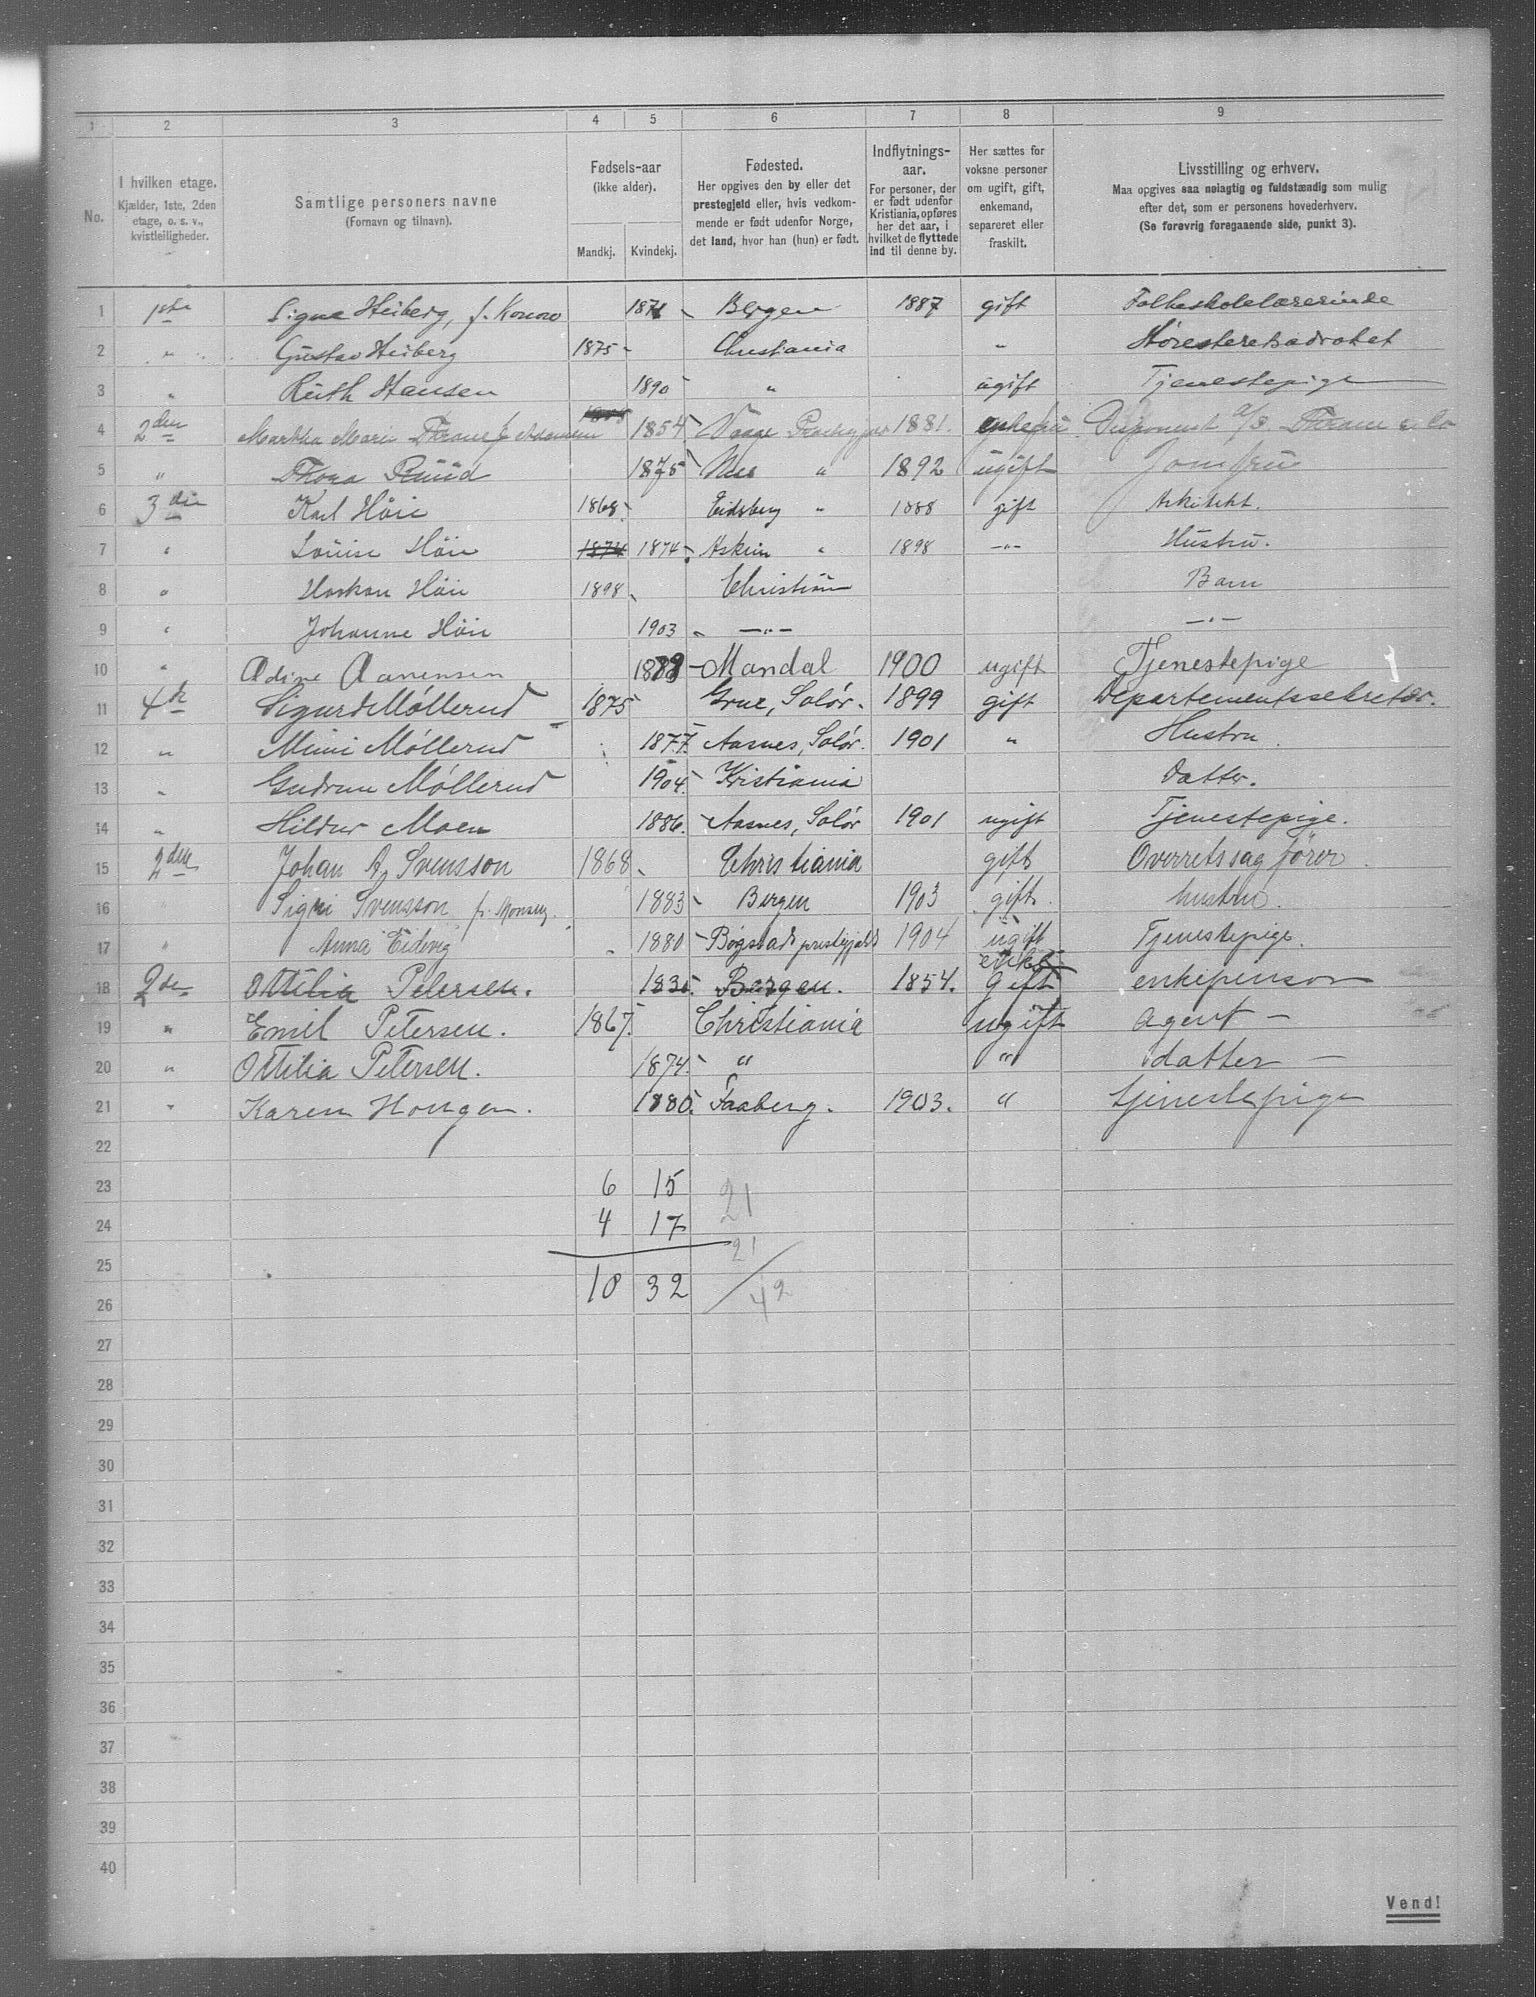 1 2 3 4 5 6 7 8 9
No.
I hvilken etage.
Kjælder, 1ste, 2den
etage, o. s. v.,
kvistleiligheder.
Samtlige personers navne
(Fornavn og tilnavn).
Fødsels-aar
(ikke alder).
Mandkj. Kvindekj.
Fødested.
Her opgives den by eller det
prestegjeld eller, hvis vedkom-
mende er født udenfor Norge,
det land, hvor han (hun) er født.
Indflytnings-
aar.
For personer, der
er født udenfor
Kristiania, opføres
her det aar, i
hvilket de flyttede
ind til denne by.
Her sættes for
voksne personer
om ugift, gift,
enkemand,
separeret eller
fraskilt.
Livsstilling og erhverv.
Maa opgives saa nøiagtig og fuldstændig som mulig
efter det, som er personens hovederhverv.
(Se forøvrig foregaaende side, punkt 3).
1 1ste Signe Heiberg, f. Konow 1871 Bergen 1887 gift Folkeskolelærerinde
2 " Gustav Heiberg 1875 Christiania " Høiesteretsadvokat
3 " Ruth Hansen 1890 " ugift Tjenestepige
4 2den Martha Marie Thrane f. 1854 Vaage 1881. enkefru Disponent A/S. Thrane & Co
5 " Thora Ruud 1875 Næs " 1892 ugift Jomfru
6 3die Karl Høie 1868. Eidsberg " 1888 gift Arkitekt.
7 " Louise Høie 1874 1874. Askim " 1898 —"— Hustru.
8 " Haakon Høie 1898 Christiania Barn
9 " Johanne Høie 1903 —"— —"—
10 " Adine Aanensen Mandal 1900 ugift Tjenestepige
11 4de Sigurd Møllerud 1875 Grue, Solør. 1899 gift Departementssekretær.
12 " Mimi Møllerud 1877. Aasnes, Solør. 1901 " Hustru.
13 " Gudrun Møllerud 1904. Kristiania Datter.
14 " Hildur Moen 1886. Aasnes, Solør 1901 ugift Tjenestepige.
15 2den Johan A. Svensson 1868. Christiania gift Overretssagfører.
16 " Signi Svensson f. Monsen. 1883 Bergen 1903 gift. hustru.
17 " Anna Eidevig 1880 Bogstads prestegjeld 1904 ugift Tjenestepige.
18 2de Ottilia Petersen. 1830. Bergen. 1854. Gift enke enkepension
19 " Emil Petersen. 1867. Christiania ugift agent —
20 " Ottilia Petersen. 1874. " " datter —
21 " Karen Hougen. 1880. Faaberg. 1903. " tjenestepige
22
23 6 15 21
24 4 17 21
25 10 32 42
26
27
28
29
30
31
32
33
34
35
36
37
38
39
40
Vend!